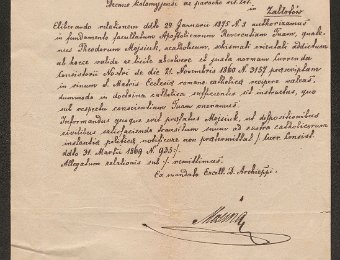 Decrevit Kolomyjensi
in Zabłotów
Eliberando relationem ddto 22 Januarii 1875 N. 3 authorizamus
in fundamento facultatum Apostolicarum Reverendum Tuam, quate-
nus Theodorum Mojsiuk, acatholicum, schismati orientali addictum
ab hocce valide et licite absolvere et juxta normam
Consistorii Nostri de die 21. Novembris 1860 N. 3157 praescriptam
in sinum S. Matris Ecclesiae romano catholicae recipere valeas,
dummodo in doctrina catholica sufficienter sit instructus, quo
sub respectu conscientiam Tuam oneramus.
Informandus quoque erit praefatus Mojsiuk, ut dispositionibus
civilibus satisfaciendo transitum suum ad castra catholicorum
instantiae politicae notificare non praetermittat
ddto 31. Martii 1869 N. 935/.
Allegatum relationis sub ·/. remittimus.
Ex mandato Excell. D. Archieppi.